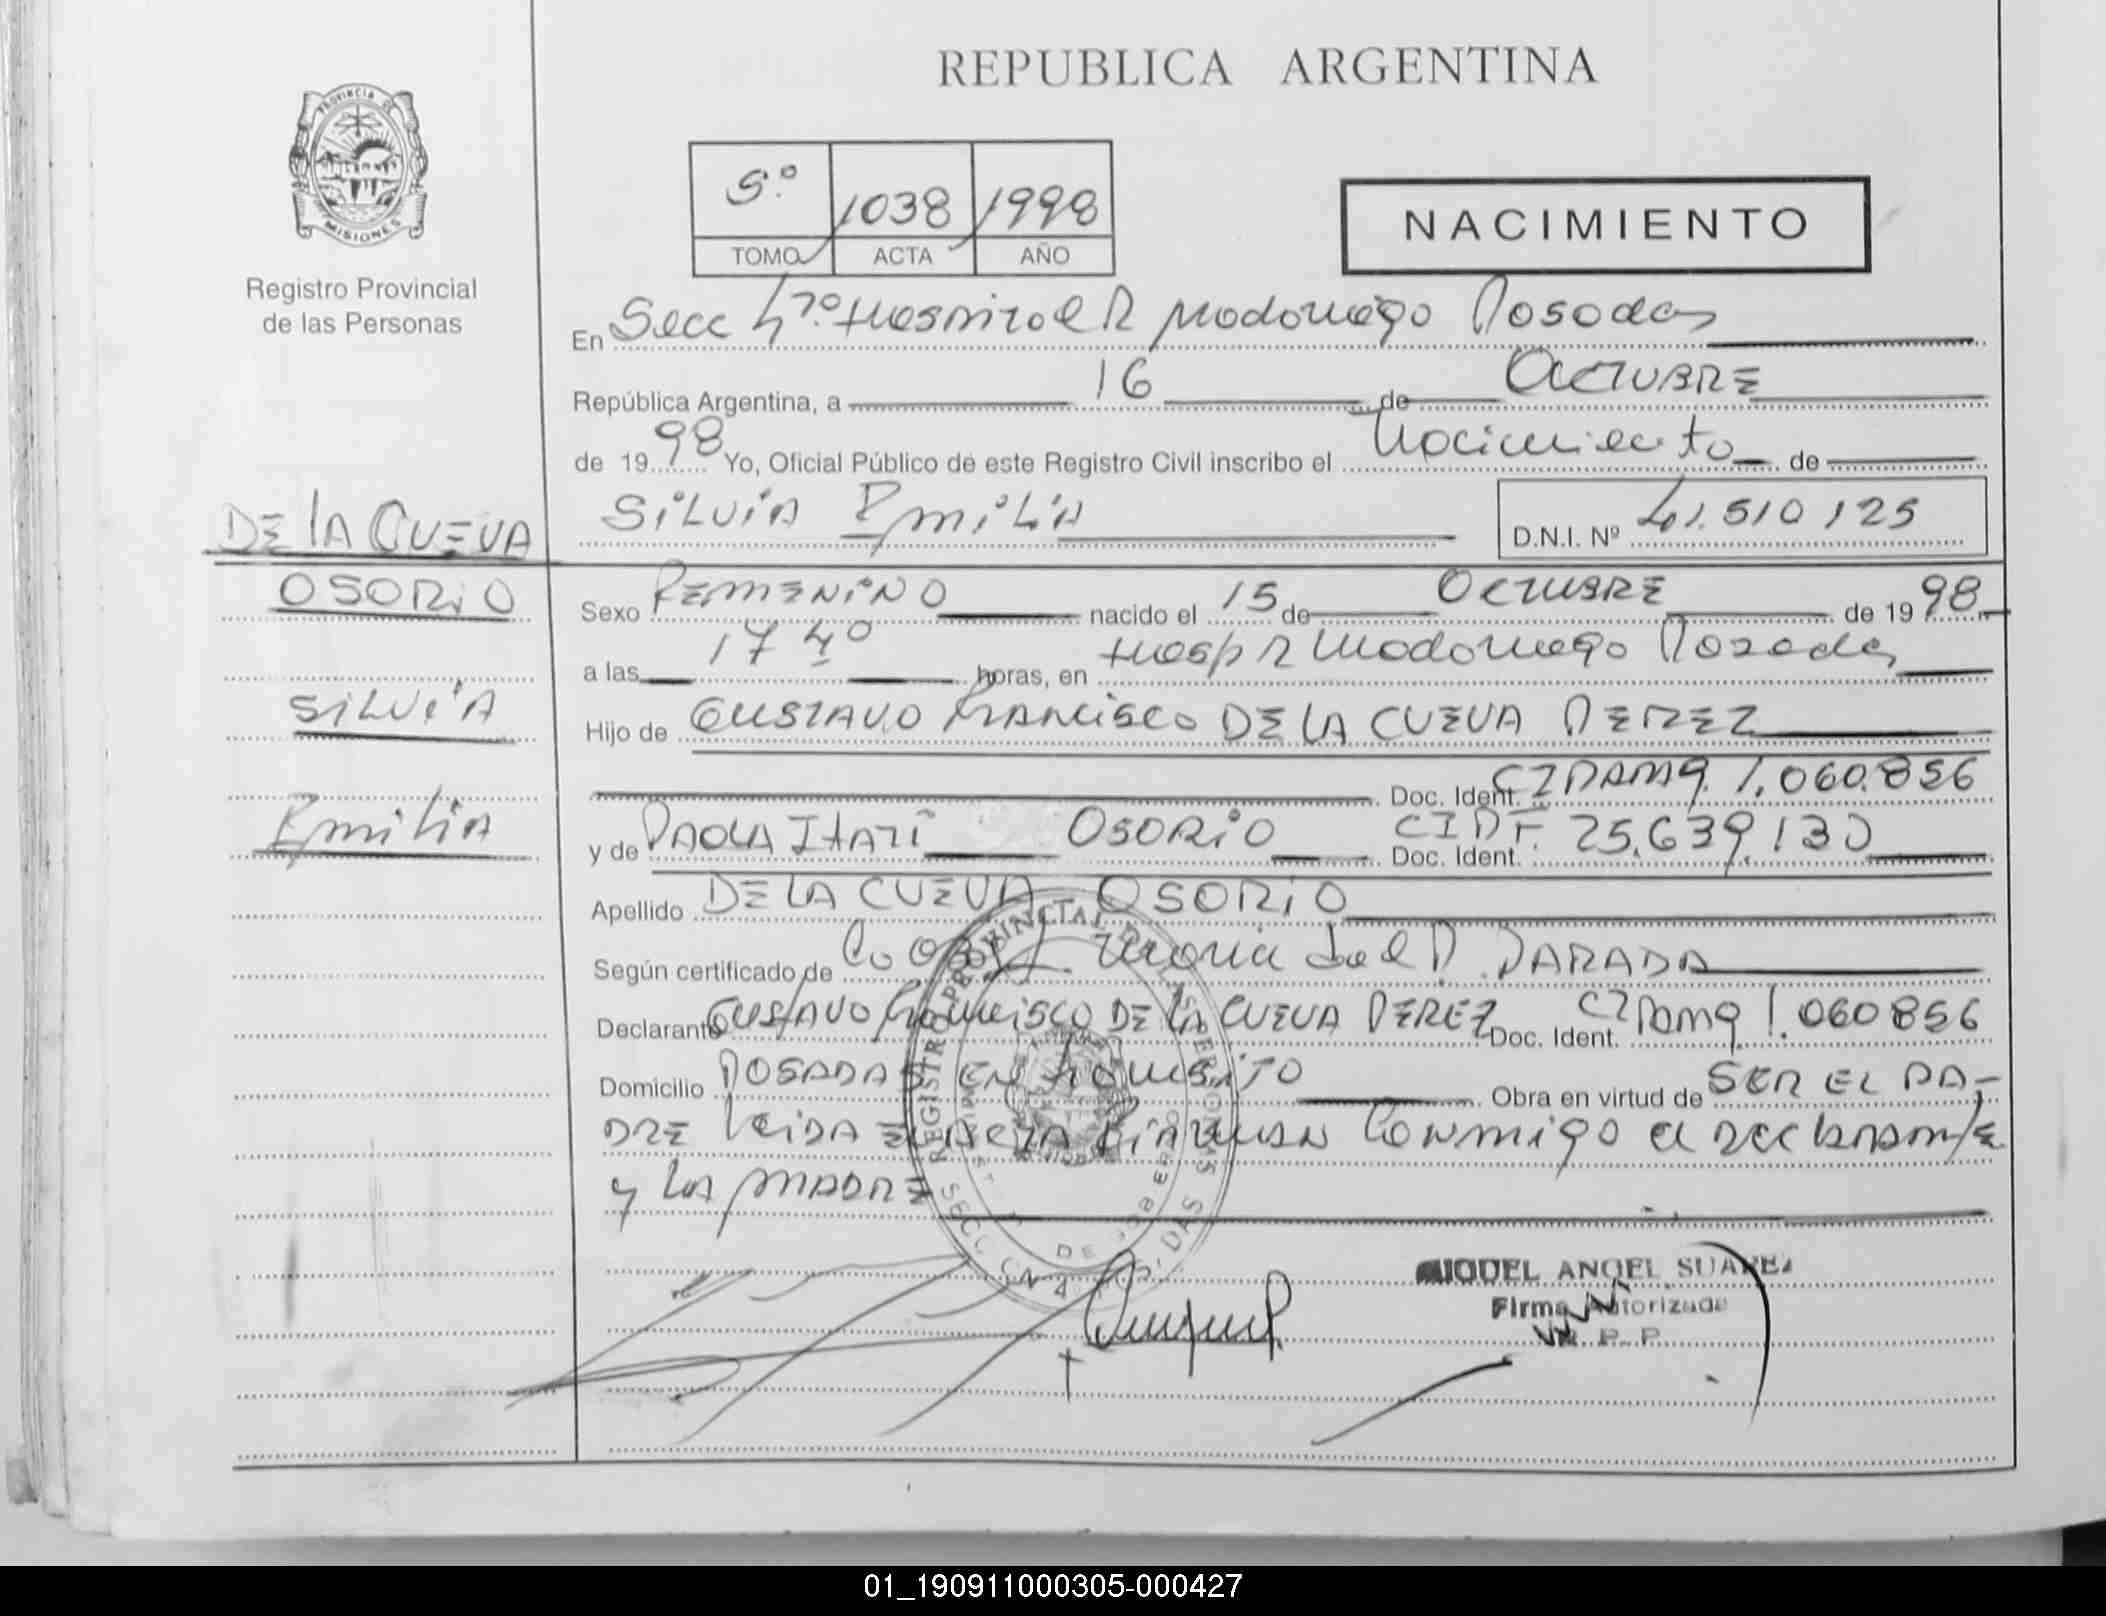 REPUBLICA ARGENTINA
PROVINCIA DE
MISIONES
Registro Provincial
de las Personas
5º 1038 1998
TOMO ACTA AÑO
NACIMIENTO
En Secc 4º Hospital R Madariaga Posadas
República Argentina, a 16 de OCTUBRE
de 1998 Yo, Oficial Público de este Registro Civil inscribo el Nacimiento de
SILVIA EMILIA D.N.I. Nº 41.510.125
DE LA CUEVA
OSORIO
SILVIA
EMILIA
Sexo FEMENINO nacido el 15 de OCTUBRE de 1998
a las 17 40 horas, en Hosp R Madariaga Posadas
Hijo de GUSTAVO FRANCISCO DE LA CUEVA PEREZ
Doc. Ident. CI 1.060.856
y de PAOLA ITATI OSORIO Doc. Ident. 25.639.130
Apellido DE LA CUEVA OSORIO
Según certificado de PARADA
Declarante GUSTAVO FRANCISCO DE LA CUEVA PEREZ Doc. Ident. CI 1.060856
Domicilio POSADAS Obra en virtud de SER EL PA-
DRE LEIDA EL ACTA FIRMAN CONMIGO EL DECLARANTE
y LA MADRE
REGISTRO PROVINCIAL DE LAS PERSONAS
MIGUEL ANGEL SUAREZ
Firma Autorizada
R. P. P.
01_190911000305-000427